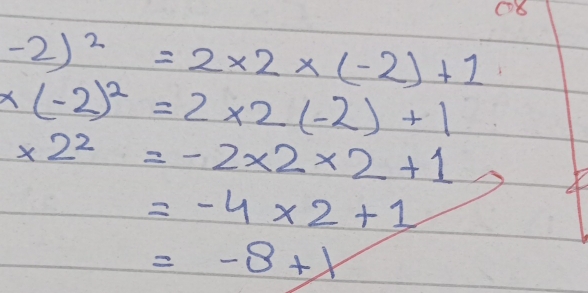 08
-2)² = 2×2×(-2)+1
×(-2)² = 2×2(-2)+1
×2² = -2×2×2+1
= -4×2+1
= -8+1